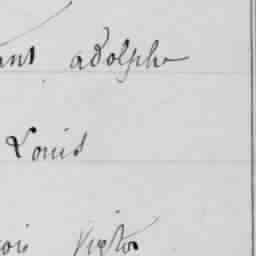 ans adolphe
Louis
cois Victor